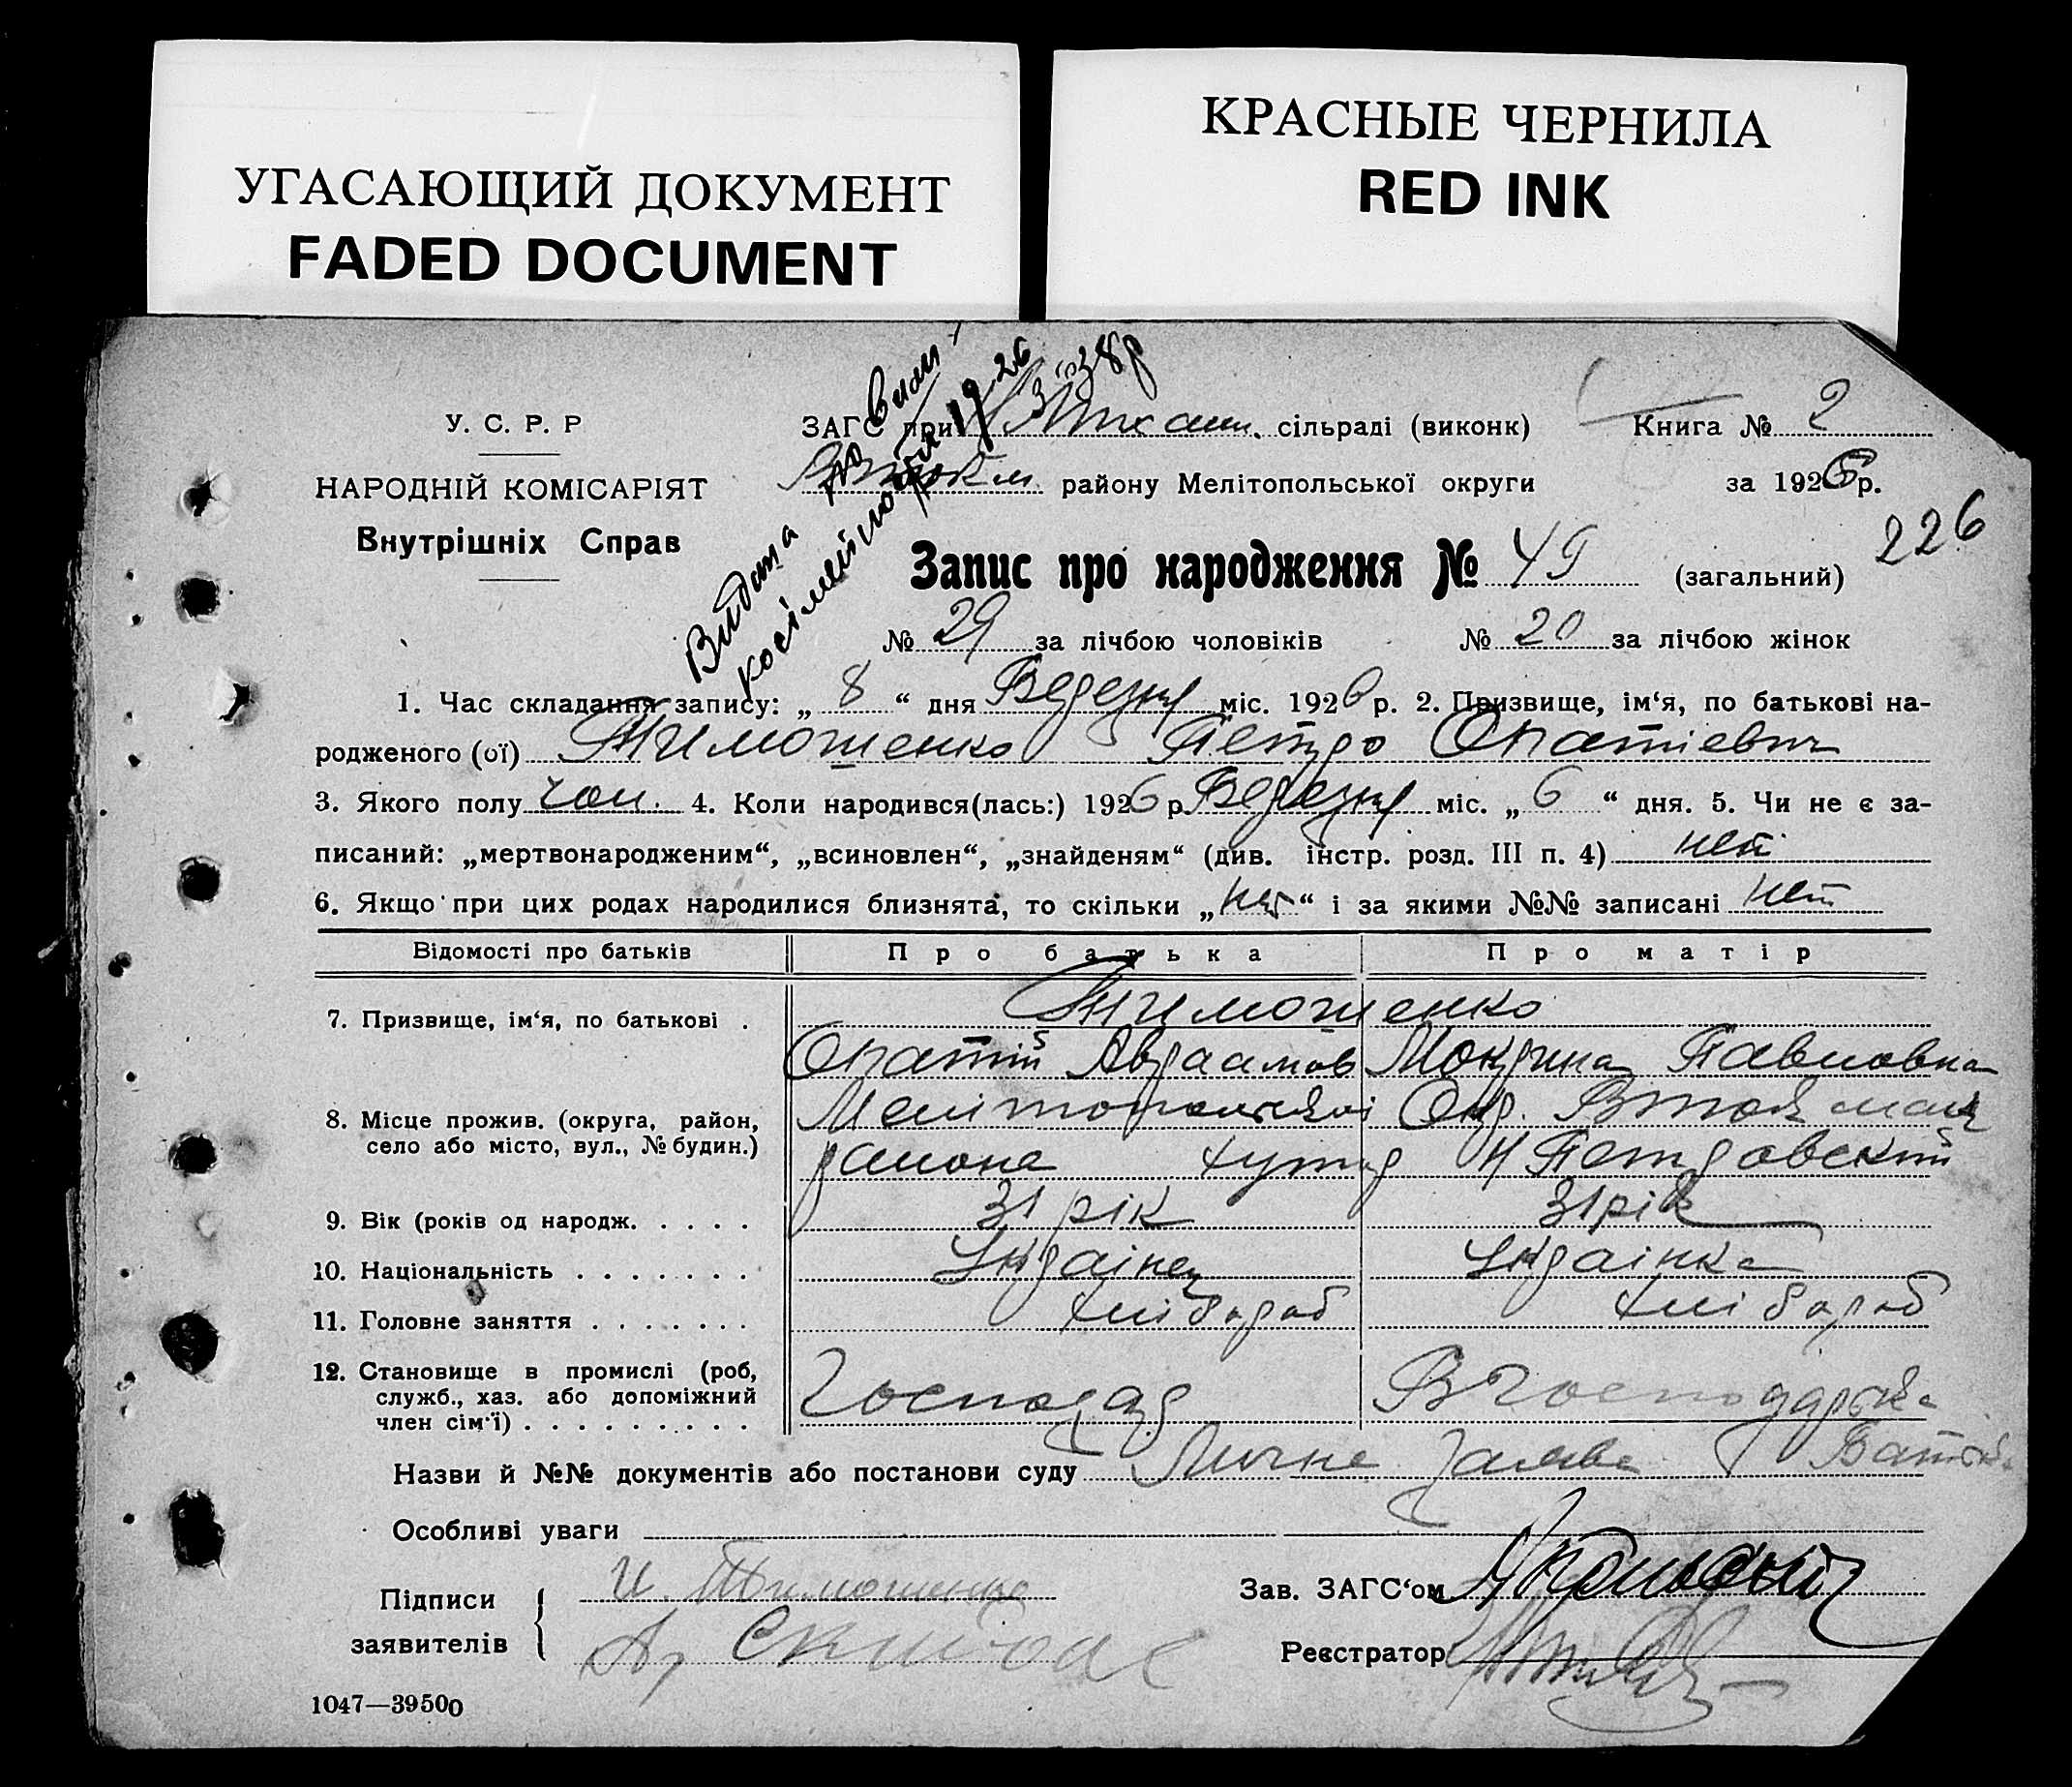 УГАСАЮЩИЙ ДОКУМЕНТ
FADED DOCUMENT
КРАСНЫЕ ЧЕРНИЛА
RED INK
У. С. Р. Р
НАРОДНІЙ КОМІСАРІЯТ
Внутрішніх Справ
ЗАГС при сільраді (виконк)
Книга № 2
району Мелітопольської округи
за 1926 р.
226
Видана
Запис про народження № 49 (загальний)
№ 29 за лічбою чоловіків № 20 за лічбою жінок
1. Час складання запису: „ 8 “ дня Березня міс. 1926 р. 2. Призвище, ім‘я, по батькові на-
родженого (ої) Тимошенко Петро Опатіевич
3. Якого полу чол. 4. Коли народився(лась:) 1926 р. Березня міс. „ 6 “ дня. 5. Чи не є за-
писаний: „мертвонародженим“, „всиновлен“, „знайденям“ (див. інстр. розд. III п. 4) нет
6. Якщо при цих родах народилися близнята, то скільки „нет“ і за якими №№ записані нет
Відомості про батьків Про батька Про матір
7. Призвище, ім‘я, по батькові . Тимошенко
Опатій Авраамов Мокрина Павловна
8. Місце прожив. (округа, район, Мелітопольскоі Окр.
село або місто, вул., № будин.) района хутір Н Петровский
9. Вік (років од народж. . . . . 31 рік 31 рік
10. Національність . . . . . . . Украінец Украінка
11. Головне заняття . . . . . . . хлібороб хлібороб
12. Становище в промислі (роб,
служб., хаз. або допоміжний Господар В Господарстве
член сім‘ї) . . . . . . . . .
Назви й №№ документів або постанови суду Лична заява Батька
Особливі уваги
Підписи
заявителів
И. Тимошенко
Зав. ЗАГС‘ом
Реєстратор
1047—39500